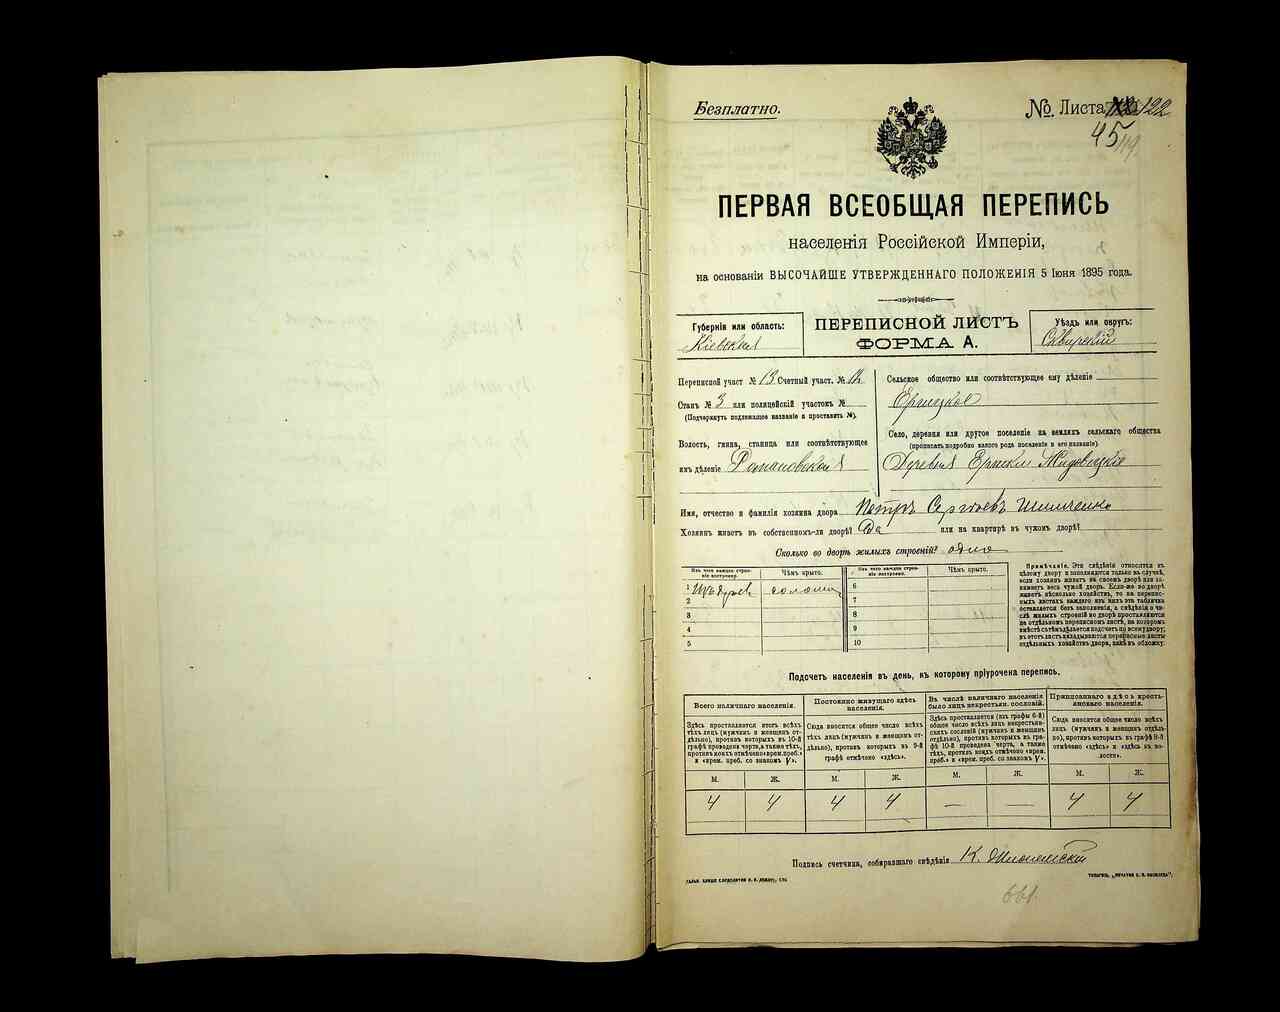 Безплатно.
№. Листа 122
45
119.
ПЕРВАЯ ВСЕОБЩАЯ ПЕРЕПИСЬ
населенія Россійской Имперіи,
на основаніи ВЫСОЧАЙШЕ УТВЕРЖДЕННАГО ПОЛОЖЕНІЯ 5 Іюня 1895 года.
Губернія или область:
Кіевская
ПЕРЕПИСНОЙ ЛИСТЪ
ФОРМА А.
Уѣздъ или округъ:
Сквирскій
Переписной участ № 13 Счетный участ. № 14
Станъ № 3 или полицейскій участокъ №
(Подчеркнуть подлежащее названіе и проставить №).
Волость, гмина, станица или соотвѣтствующее
имъ дѣленіе Романовская
Сельское общество или соотвѣтствующее ему дѣленіе
Ерчицкое
Село, деревня или другое поселеніе на земляхъ сельскаго общества
(прописать подробно какого рода поселеніе и его названіе)
Деревня Ерчики
Имя, отчество и фамилія хозяина двора Петръ Сергѣевъ Шимченко
Хозяинъ живетъ въ собственномъ-ли дворѣ? Да или на квартирѣ въ чужомъ дворѣ?
Сколько во дворѣ жилыхъ строеній? одно
Изъ чего каждое строеніе построено.
Чѣмъ крыто.
Изъ чего каждое строеніе построено.
Чѣмъ крыто.
1 Изъ дерев солома
2
3
4
5
6
7
8
9
10
Примѣчаніе. Эти свѣдѣнія относятся къ
цѣлому двору и заполняются только въ случаѣ,
если хозяинъ живетъ на своемъ дворѣ или занимаетъ
весь чужой дворъ. Если-же во дворѣ
живетъ нѣсколько хозяйствъ, то на переписныхъ
листахъ каждаго изъ нихъ эта табличка
оставляется безъ заполненія, а свѣдѣнія о числѣ
жилыхъ строеній во дворѣ проставляются
на отдѣльномъ переписномъ листѣ, на которомъ
вмѣстѣ съ тѣмъ дѣлается подсчетъ по всему двору;
въ этотъ листъ вкладываются переписные листы
отдѣльныхъ хозяйствъ двора, какъ въ обложку.
Подсчетъ населенія въ день, къ которому пріурочена перепись.
Всего наличнаго населенія.
Здѣсь проставляется итогъ всѣхъ
тѣхъ лицъ (мужчинъ и женщинъ отдѣльно),
противъ которыхъ въ 10-й
графѣ проведена черта, а также тѣхъ,
противъ коихъ отмѣчено «врем. преб.»
и «врем. преб. со знакомъ V».
Постоянно живущаго здѣсь
населенія.
Сюда вносится общее число всѣхъ
тѣхъ лицъ (мужчинъ и женщинъ отдѣльно),
противъ которыхъ въ 9-й
графѣ отмѣчено «здѣсь».
Въ числѣ наличнаго населенія
было лицъ некрестьян. сословій.
Здѣсь проставляется (изъ графы 6-й)
общее число всѣхъ лицъ некрестьянскихъ
сословій (мужчинъ и женщинъ
отдѣльно), противъ которыхъ въ графѣ
10-й проведена черта, а также
тѣхъ, противъ коихъ отмѣчено «врем.
преб.» и «врем. преб. со знакомъ V».
Приписаннаго здѣсь крестьянскаго
населенія.
Сюда вносится общее число всѣхъ
лицъ (мужчинъ и женщинъ отдѣльно),
противъ которыхъ въ графѣ 8-й
отмѣчено «здѣсь» и «здѣсь въ волости».
М. Ж. М. Ж. М. Ж. М. Ж.
4 4 4 4 — — 4 4
Подпись счетчика, собиравшаго свѣдѣнія К.
661.